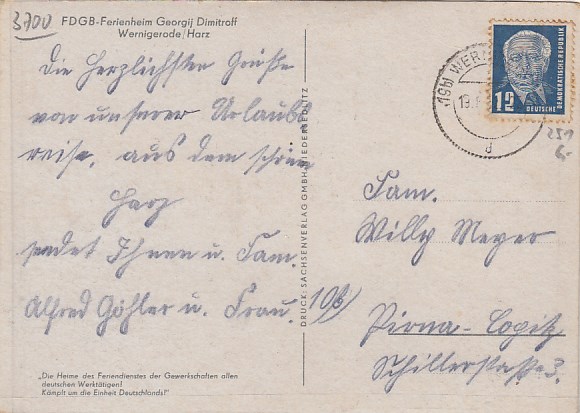 3700
FDGB-Ferienheim Georgij Dimitroff
Wernigerode/Harz
Die Herzlichsten Grüße
von unserer Urlaubs
reise, aus dem schönen
Harz
sendet Ihnen u. Fam.
Alfred Göhler u. Frau.
„Die Heime des Feriendienstes der Gewerkschaften allen
deutschen Werktätigen!
Kämpft um die Einheit Deutschlands!"
DRUCK: SACHSENVERLAG GMBH NIEDERSEDLITZ
(19b) WER
19.
d
12
DEUTSCHE
DEMOKRATISCHE REPUBLIK
251
6,-
Fam.
Willy Meyer
Pirna-Copitz
Schillerstraße 3.